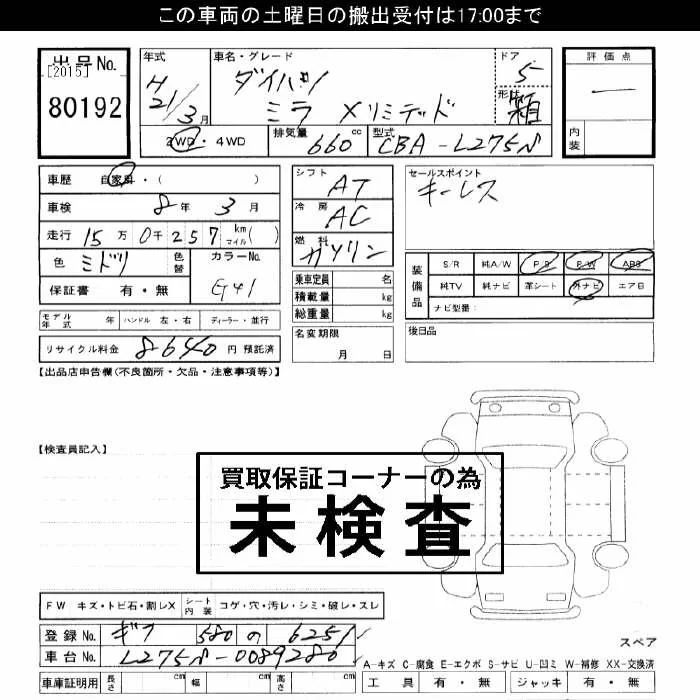 この車両の土曜日の搬出受付は17:00まで
出品No. [2015] 80192
年式 H21/3月
車名・グレード ダイハツ ミラ Xリミテッド
ドア 5
形状 箱
評価点 ー
内装
2WD・4WD
排気量 660cc
型式 CBA-L275S
車歴 自家用・( )
車検 8年3月
走行 15万0千257km(マイル)( )
色 ミドリ 色替 カラーNo. G41
保証書 有・無
シフト AT
冷房 AC
燃料 ガソリン
乗車定員 名
積載量 kg
総重量 kg
名変期限 月 日
セールスポイント
キーレス
装備品 S/R 純A/W P.S P.W ABS
純TV 純ナビ 革シート 外ナビ エアB
ナビ型番:
後日品
モデル年式 年 ハンドル 左・右 ディーラー・並行
リサイクル料金 8640円 預託済
【出品店申告欄(不良箇所・欠品・注意事項等)】
【検査員記入】
買取保証コーナーの為
未検査
FW キズ・トビ石・割レX シート内装 コゲ・穴・汚レ・シミ・破レ・スレ
登録No. ギフ 580 の 6251
車台No. L275S-0089280
車庫証明用 長さ cm 幅 cm 高さ cm
スペア
A-キズ C-腐食 E-エクボ S-サビ U-凹ミ W-補修 XX-交換済
工具 有・無 ジャッキ 有・無